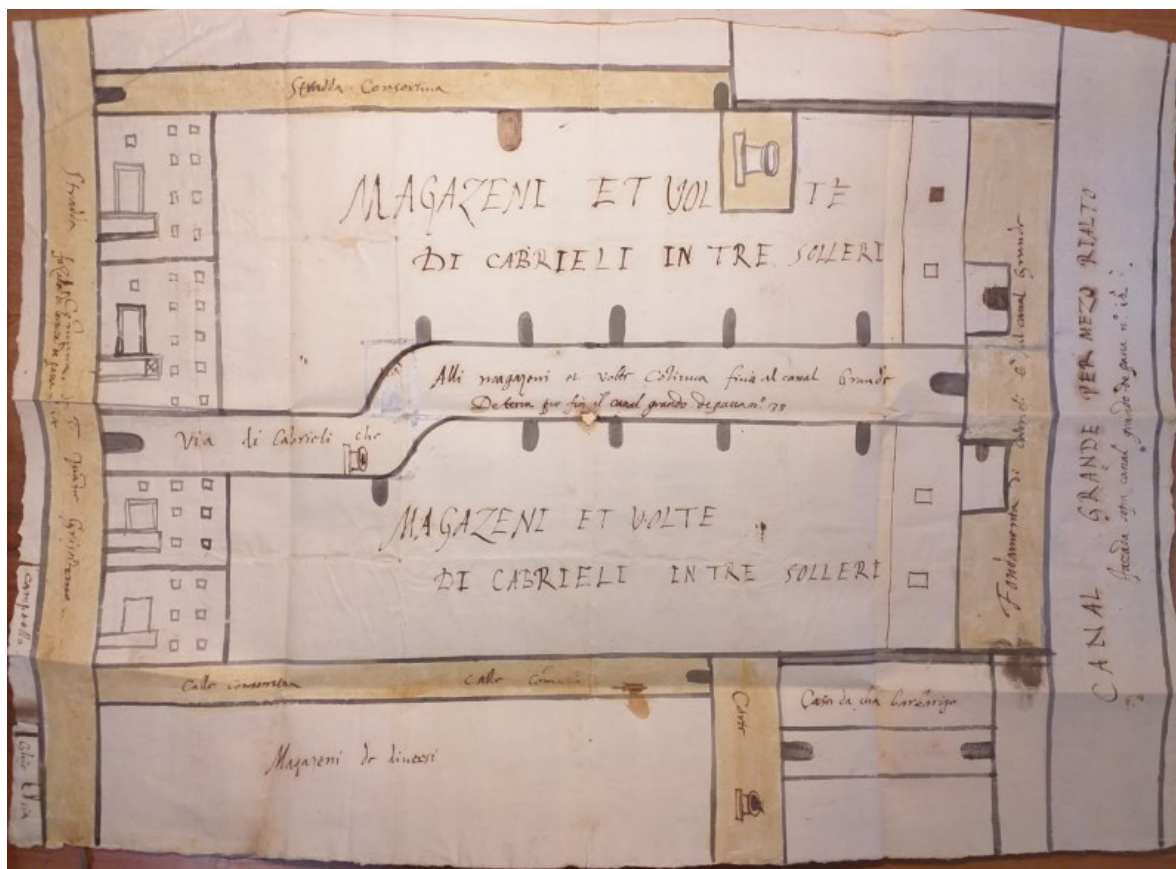 Stradda Consortiva
MAGAZENI ET VOLTE
DI CABRIELI IN TRE SOLLERI
Alli magazeni et volte Continua finis al canal Grande
De terra per fin al canal grando de passa nº. 73
Via di Cabrieli che
MAGAZENI ET VOLTE
DI CABRIELI IN TRE SOLLERI
Calle consortiva
Calle Comuna
Magazeni de diversi
Corte
Casa da cha Barbarigo
Stradda
campiello
Fondamenta di Cabrieli
sul canal Grando
CANAL GRANDE PER MEZO RIALTO
facciada sopra canal grando de passa nº.